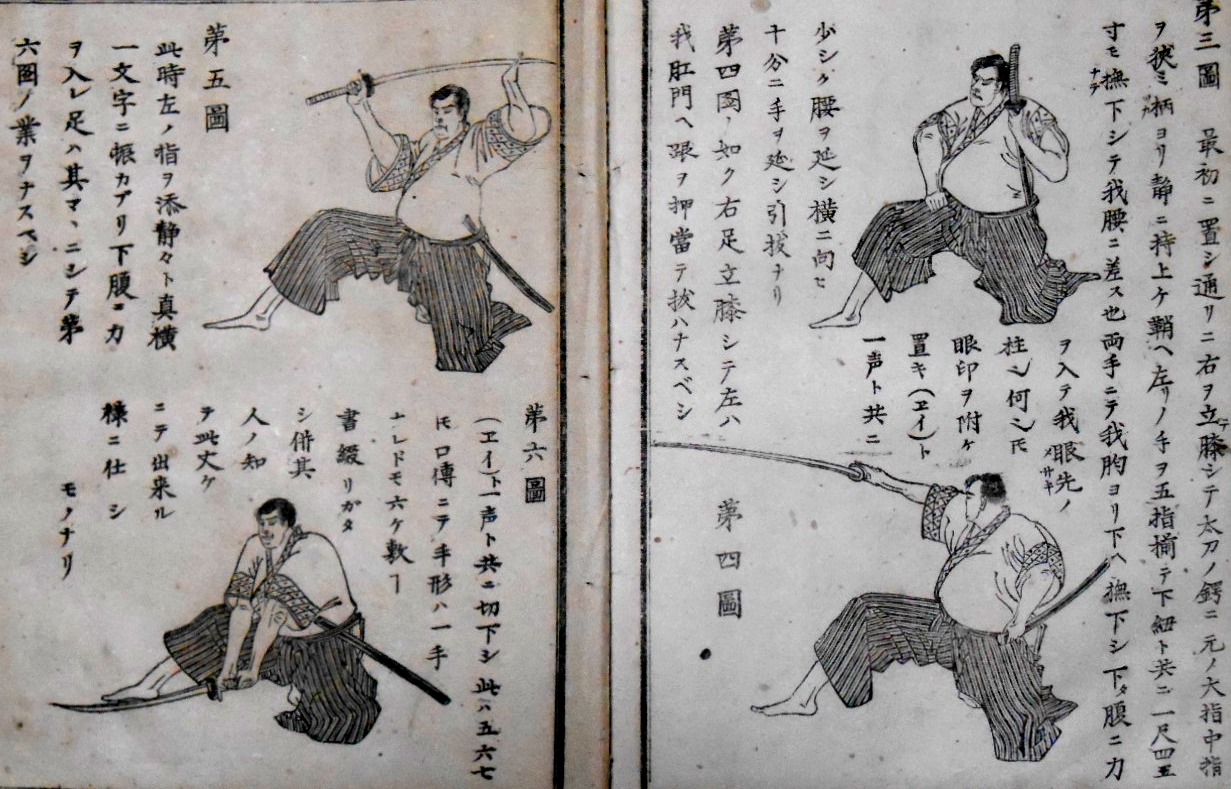 第三圖　最初ニ置シ通リニ右ヲ立膝シテ太刀ノ鍔ニ元ノ大指中指
ヲ狹ミ柄ヨリ静ニ持上ケ鞘ヘ左リノ手ヲ五指揃テ下紐ト共ニ一尺四五
寸モ撫下シテ我腰ニ差ス也両手ニテ我胸ヨリ下ヘ撫下シ下タ腹ニ力
ヲ入テ我眼先ノ
柱ン何ンモ
眼印ヲ附ケ
置キ(ヱイ)ト
一声ト共ニ
少シク腰ヲ延シ横ニ向セ
十分ニ手ヲ延シ引拔ナリ
第四圖ノ如ク右足立膝シテ左ハ
我肛門ヘ跟ヲ押當テ拔ハナスベシ
第四圖
第五圖
此時左ノ指ヲ添静々ト真横
一文字ニ振カブリ下腹ニ力
ヲ入レ足ハ其マヽニシテ第
六圖ノ業ヲナスベシ
第六圖
(ヱイ)ト一声ト共ニ切下シ此ハ五六七
モ口傳ニテ手形ハ一手
ナレドモ六ケ敷ヿ
書綴リガタ
シ併其
人ノ知
ヲ此丈ケ
ニテ出来ル
様ニ仕シ
モノナリ